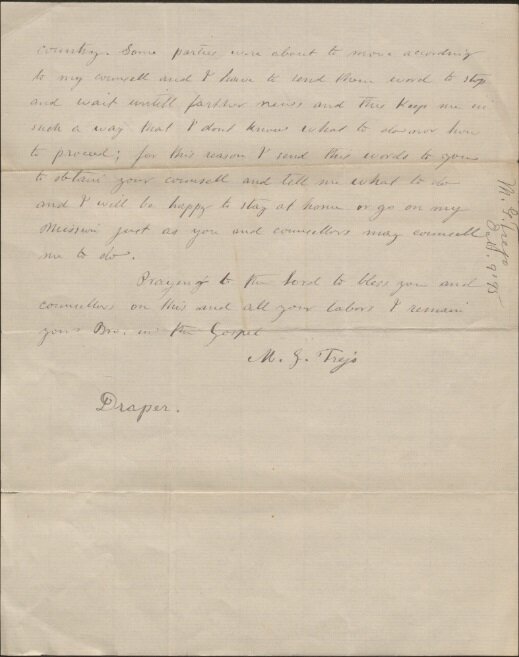 country. Some parties were about to move according
to my counsell and I have to send them word to stop
and wait untill farther news and this keep me in
such a way that I dont know what to do nor how
to proceed; for this reason I send this words to you
to obtain your counsell and tell me what to do
and I will be happy to stay at home or go on my
Mission just as you and councillors may counsell
me to do.
Praying to the Lord to bless you and
councillors on this and all your labors I remain
your Bro. in the Gospel
M. G. Trejo
Draper.
M. G. Trejo